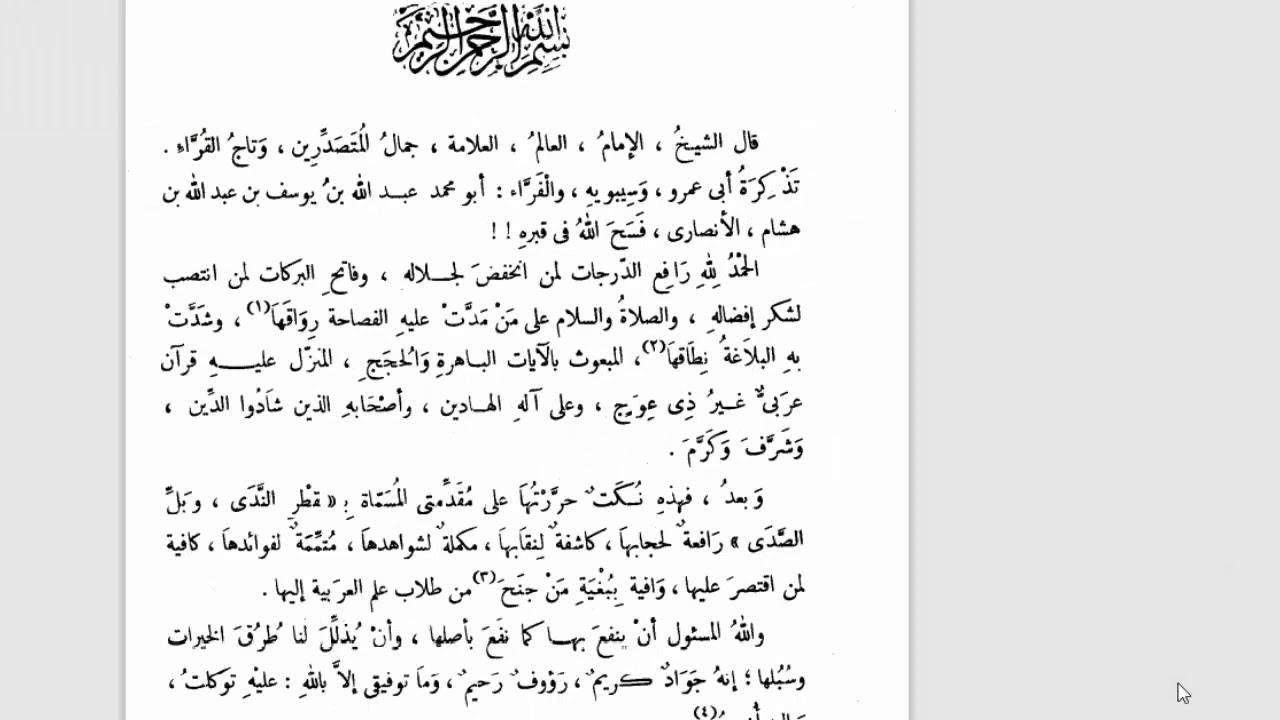 بسم الله الرحمن الرحيم
قال الشيخُ ، الإمامُ ، العالمُ ، العلامة ، جمالُ المُتَصَدِّرِين ، وَتاجُ القُرَّاءِ .
تَذْكِرَةُ أبى عمرو ، وَسِيبويهِ ، والْفَرَّاء : أبو محمد عبد الله بنُ يوسف بن عبد الله بن
هشام ، الأنصارى ، فَسَحَ اللهُ فى قبرهِ ! !
الحَمْدُ لِلهِ رَافِعِ الدّرجات لمن انخفضَ لجلاله ، وفاتحِ البركات لمن انتصب
لشكر إفضالهِ ، والصلاةُ والسلام على مَنْ مَدَّتْ عليهِ الفصاحة رِوَاقَهَا(١) ، وشَدَّتْ
بهِ البلاَغةُ نِطَاقها(٢) ، المبعوث بالآيات الباهرةِ وَالحُجَجِ ، المنزّل عليهِ قرآن
عرَبىٌّ غيرُ ذِى عِوَجٍ ، وعلى آلهِ الهادين ، وأصْحَابهِ الذين شاَدُوا الدِّين ،
وَشَرَّفَ وَكَرَّمَ .
وَبعدُ ، فهذهِ نُكَتٌ حرَّرْتُهَا على مُقَدِّمتى المُسَمّاة بِـ « قطْرِ النَّدَى ، وبَلِّ
الصَّدَى » رَافعةٌ لحجابهاَ ، كاشفةٌ لِنقابهاَ ، مكملةٌ لشواهدهاَ ، مُتمِّمَةٌ لفوائدهاَ ، كافية
لمن اقتصرَ عليها ، وَافية بِبُغْيَةِ مَنْ جنَحَ(٣) من طلاب علم العرَبية إليها .
واللهُ المسئول أنْ ينفعَ بهـا كما نفَعَ بأصلها ، وأنْ يُذلِّلَ لنا طُرُقَ الخيرات
وسُبُلها ؛ إنهُ جَوَادٌ كريمٌ ، رَؤوفٌ رَحيمٌ ، وَماَ توفيقى إلاَّ باللهِ : عليْهِ توكلتُ ،